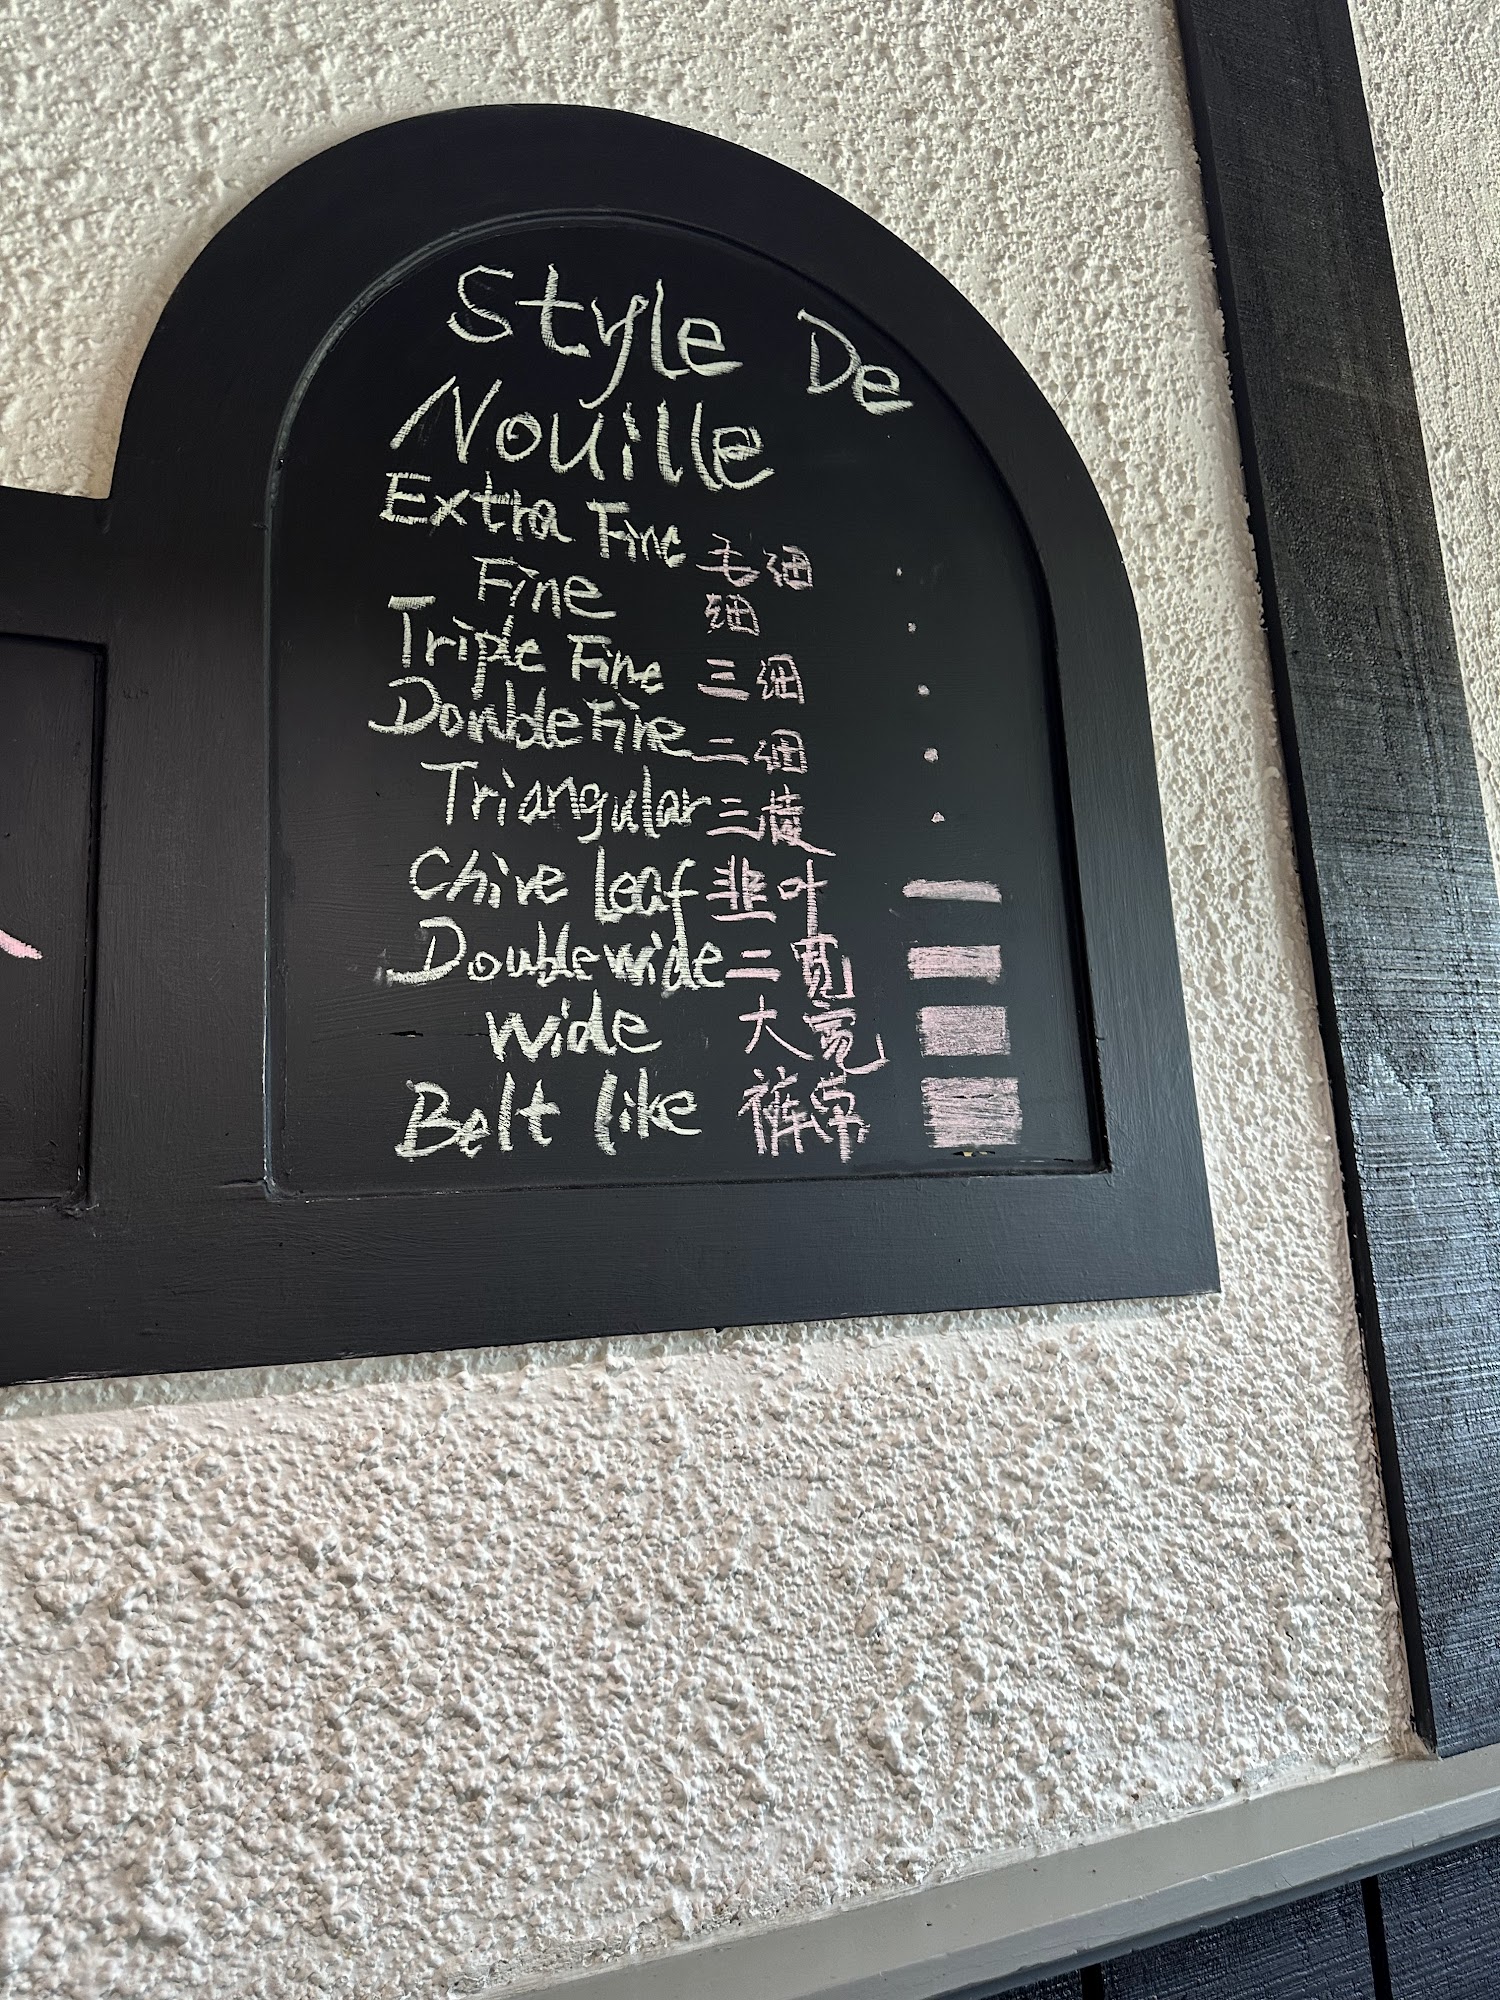 Style De
Nouille
Extra Fine 毛细
Fine 细
Triple Fine 三细
Double Fine 二细
Triangular 三棱
Chive leaf 韭叶
Double wide 二宽
wide 大宽
Belt like 裤带